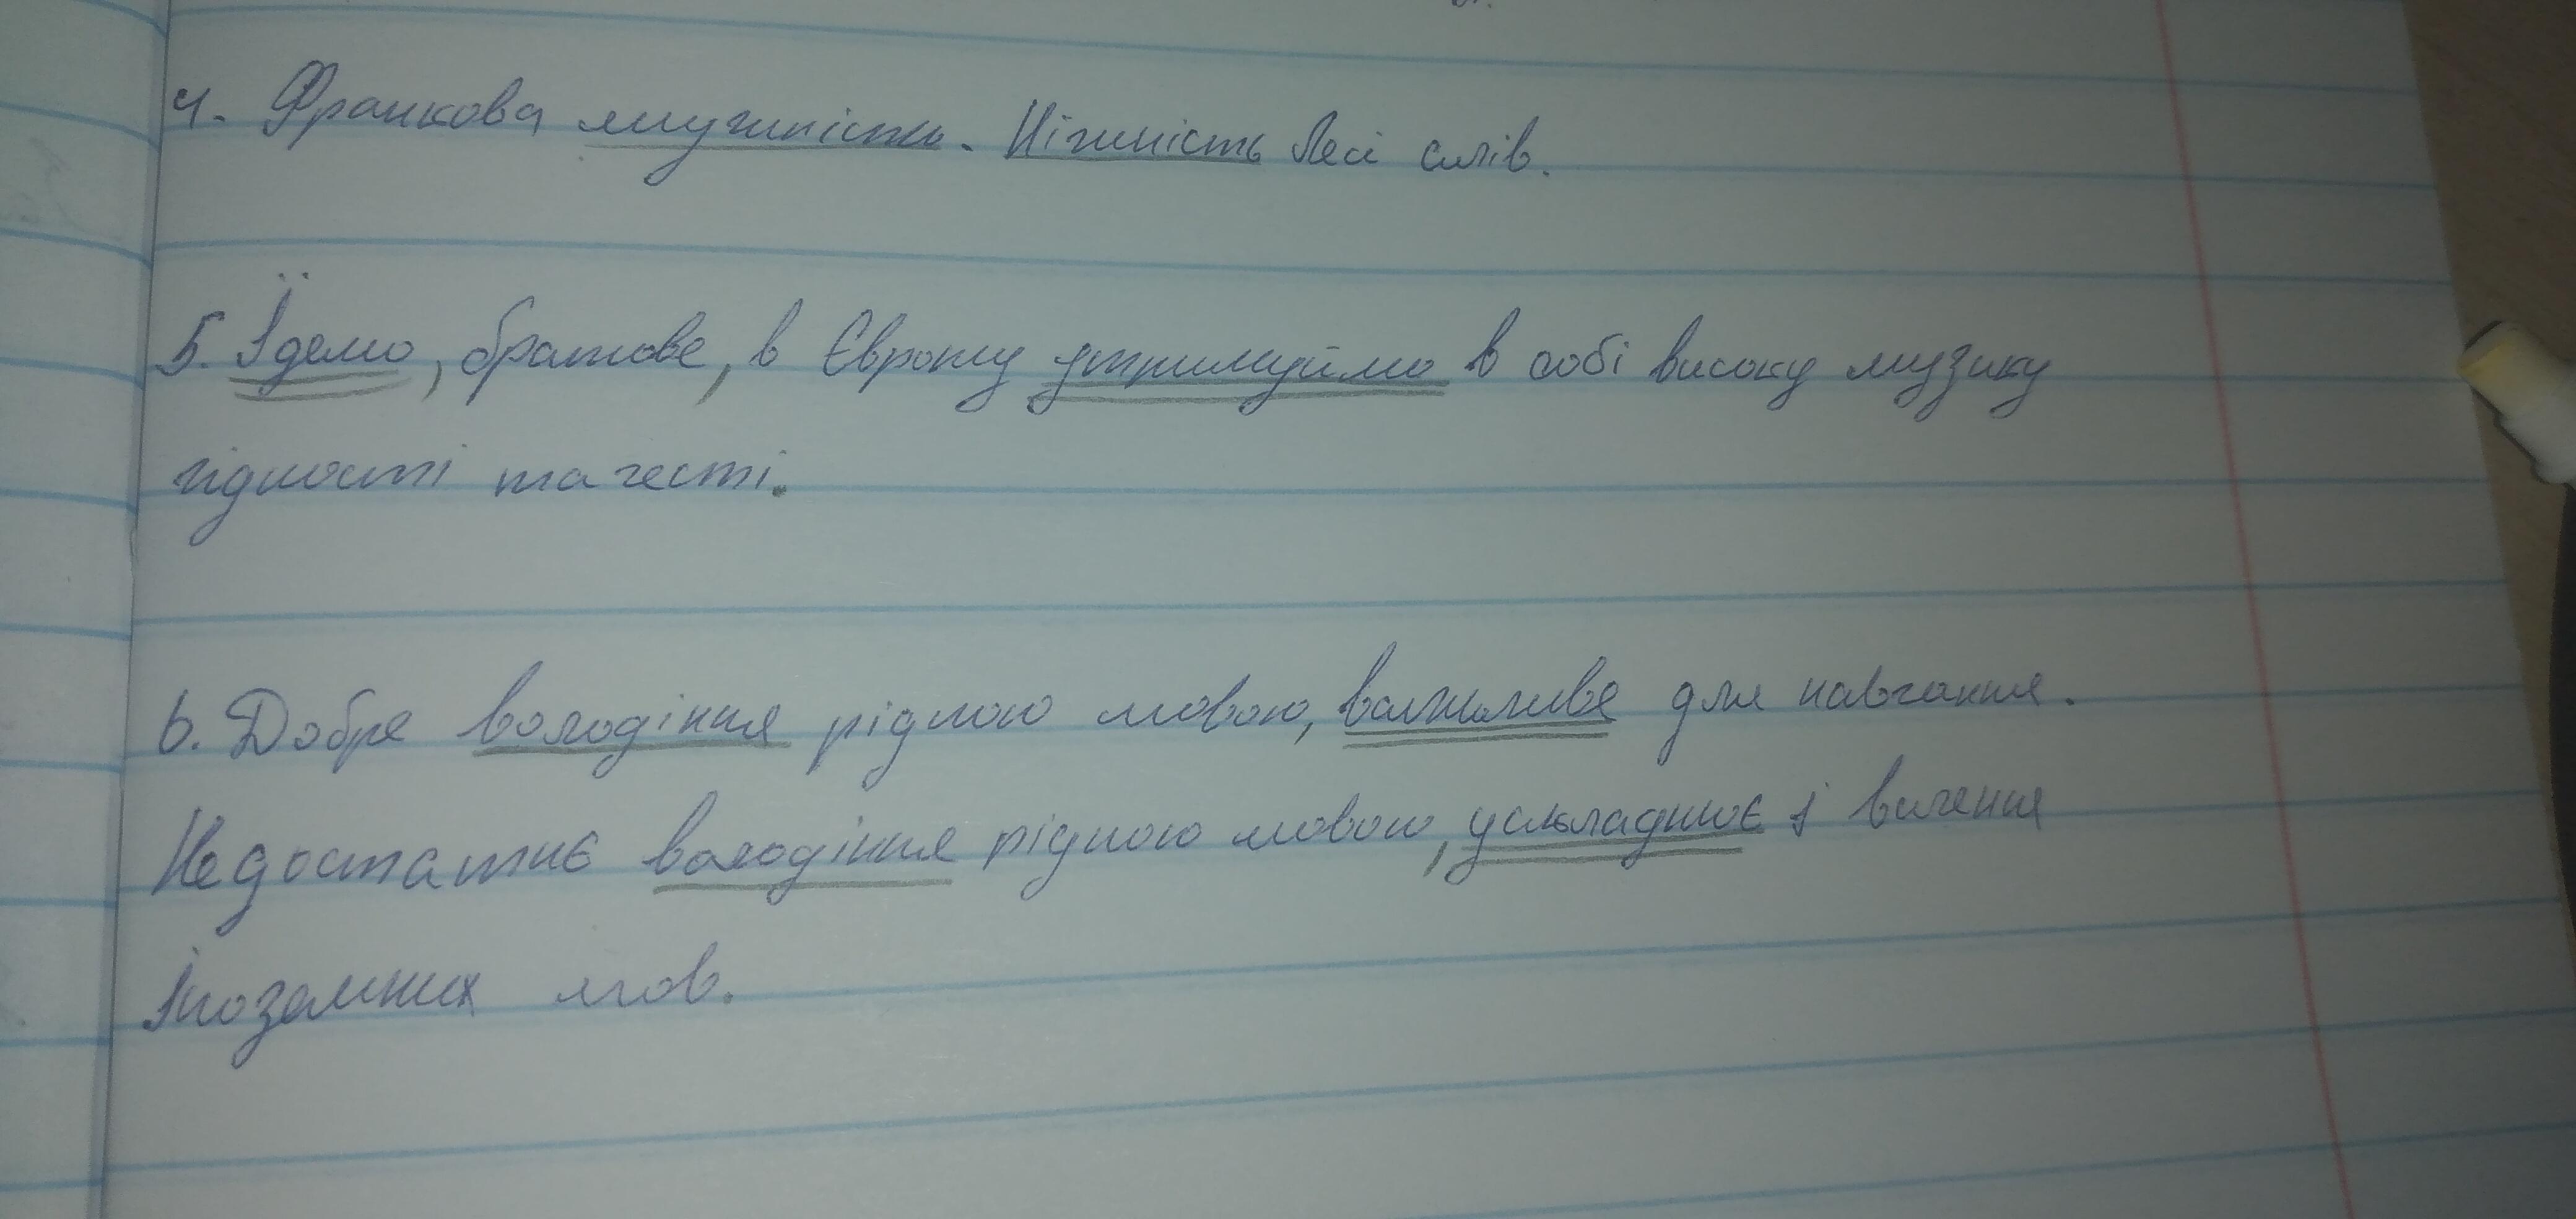 4. Франкова мужність. Ніжність Лесі слів.
5. Їдемо, братове, в Європу утримуймо в собі високу музику
гідності та честі.
6. Добре володіння рідною мовою, важливе для навчання.
Недостатнє володіння рідною мовою, ускладнює і вичення
іноземних мов.